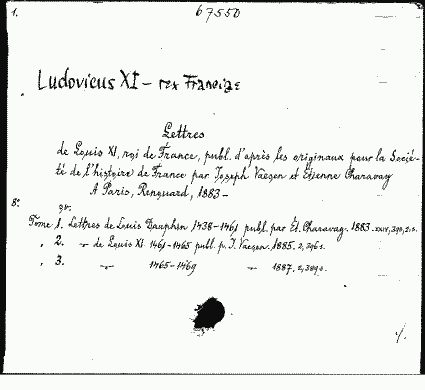 1.
67550
Ludovicus XI – rex Franciae
Lettres
de Louis XI, roi de France, publ. d'après les originaux pour la Socié-
té de l'histoire de France par Joseph Vaesen et Etienne Charavay
A Paris, Renouard, 1883 –
8°. gr.
Tome 1. Lettres de Louis Dauphin 1438–1461 publ. par Et. Charavay. 1883.
„ 2. „ de Louis XI 1461–1465 publ. p. J. Vaesen. 1885.
„ 3. „ 1465–1469 „ 1887.